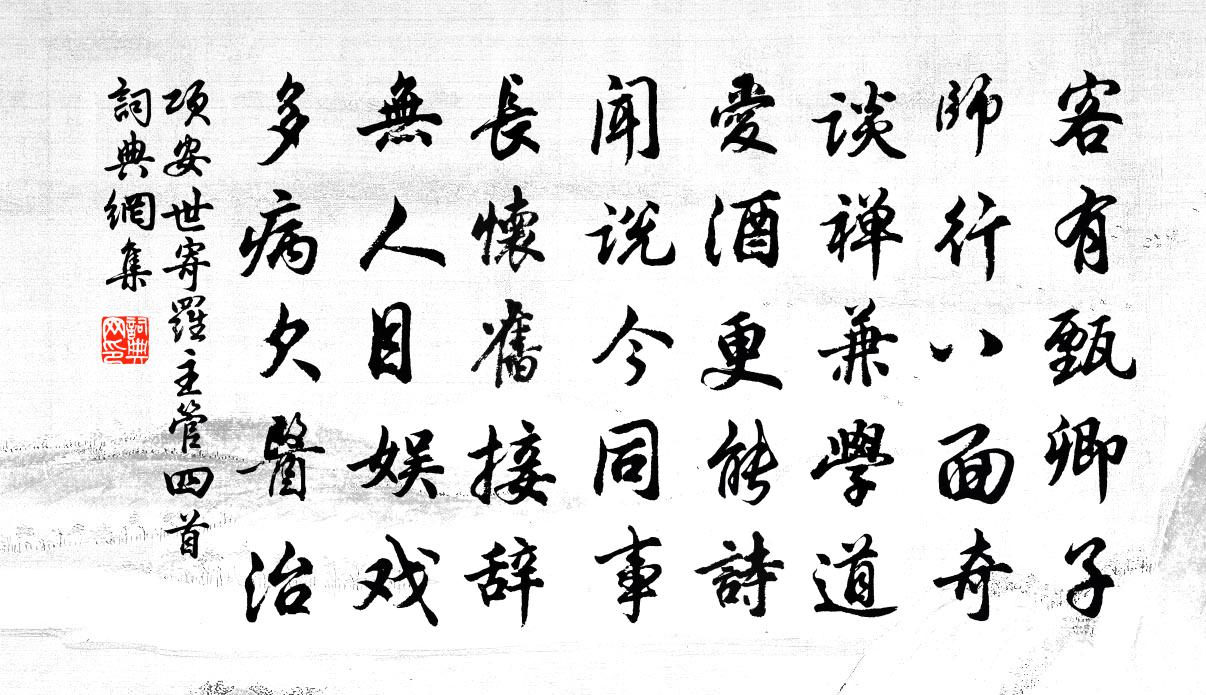 客有甄卿子
師行八面奇
談禅兼學道
愛酒更能詩
闻说今同事
長懷舊接辞
無人目娱戏
多病久醫治
项安世寄羅主管四首
詞典網集
詞典
网印